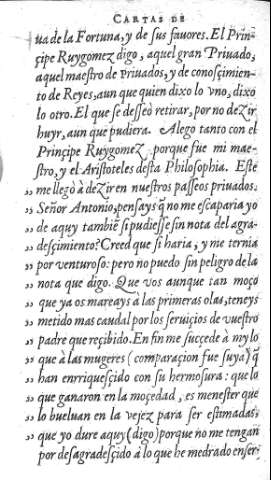 CARTAS DE
ua de la Fortuna, y de sus fauores. El Prin-
çipe Ruygomez digo, aquel gran Priuado,
aquel maestro de Priuados, y de conosçimien-
to de Reyes, aun que quien dixo lo vno, dixo
lo otro. El que se desseò retirar, por no deZir
huyr, aun que pudiera. Alego tanto con el
Prinçipe RuygomeZ porque fue mi mae-
stro, y el Aristoteles desta Philosophia. Este
me llegò à deZir en nuestros passeos priuados.
,, Señor Antonio, pensays q̃ no me escaparia yo
,, de aquy tambiẽ si pudiesse sin nota del agra-
,, desçimiento? Creed que si haria, y me ternia
,, por venturoso: pero no puedo sin peligro de la
,, nota que digo. Que vos aunque tan moço
,, que ya os mareays à las primeras olas, teneys
,, metido mas caudal por los seruiçios de vuestro
,, padre que reçibido. En fin me sucçede à my lo
,, que à las mugeres (comparaçion fue suya) q̃
,, han enrriquesçido con su hermosura: que lo
,, que ganaron en la moçedad, es menester que
,, lo bueluan en la vejez para ser estimadas:
,, que yo dure aquy (digo) porque no me tengan
,, por desagradesçido à lo que he medrado en ser-